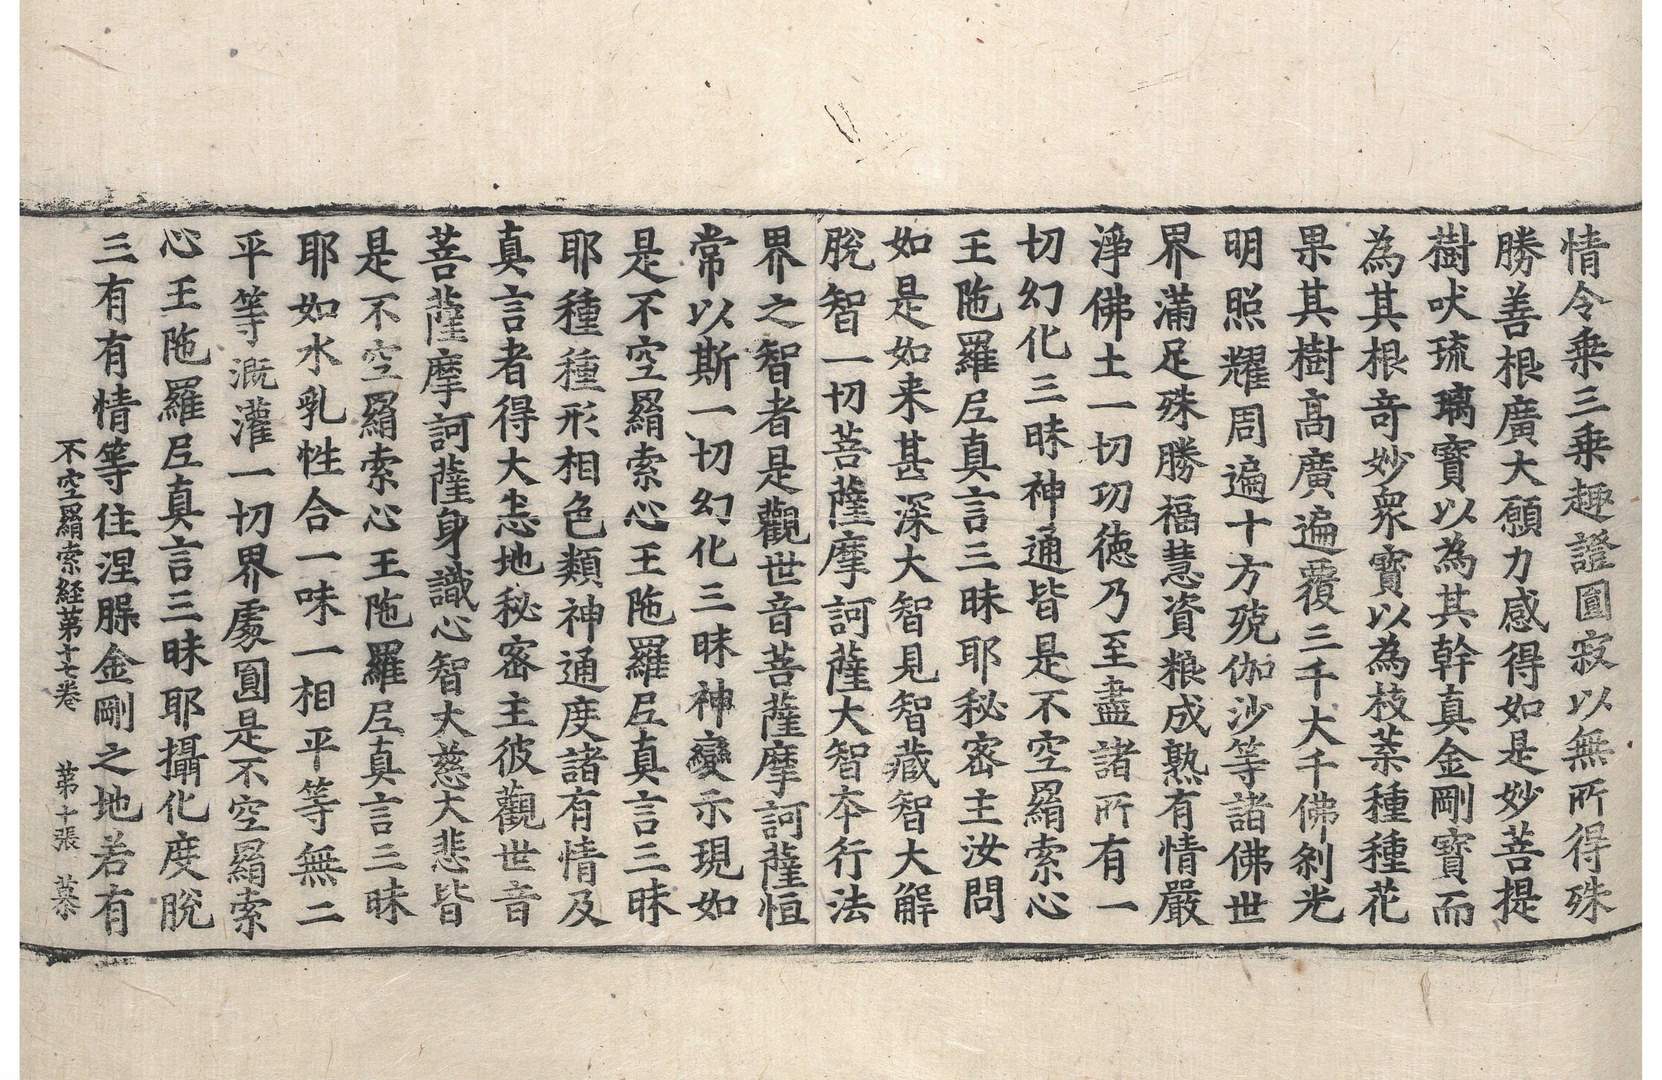 情令乗三乗趣證圓寂以無所得殊
勝善根廣大願力感得如是妙菩提
樹吠琉璃寶以為其幹真金剛寶而
為其根竒妙衆寶以為枝葉種種花
果其樹髙廣遍覆三千大千佛剎光
明照耀周遍十方殑伽沙等諸佛世
界滿足殊勝福慧資粮成熟有情嚴
淨佛土一切功徳乃至盡諸所有一
切幻化三昧神通皆是不空羂索心
王陁羅尼真言三昧耶秘密主汝問
如是如来甚深大智見智藏智大解
脫智一切菩薩摩訶薩大智夲行法
界之智者是觀世音菩薩摩訶薩恒
常以斯一切幻化三昧神變示現如
是不空羂索心王陁羅尼真言三昧
耶種種形相色類神通度諸有情及
真言者得大恚地秘密主彼觀世音
菩薩摩訶薩身識心智大慈大悲皆
是不空羂索心王陁羅尼真言三昧
耶如水乳性合一味一相平等無二
平等溉灌一切界處圓是不空羂索
心王陁羅尼真言三昧耶攝化度脫
三有有情等住涅槃金剛之地若有
不空羂索経第十七卷　第十張　慕